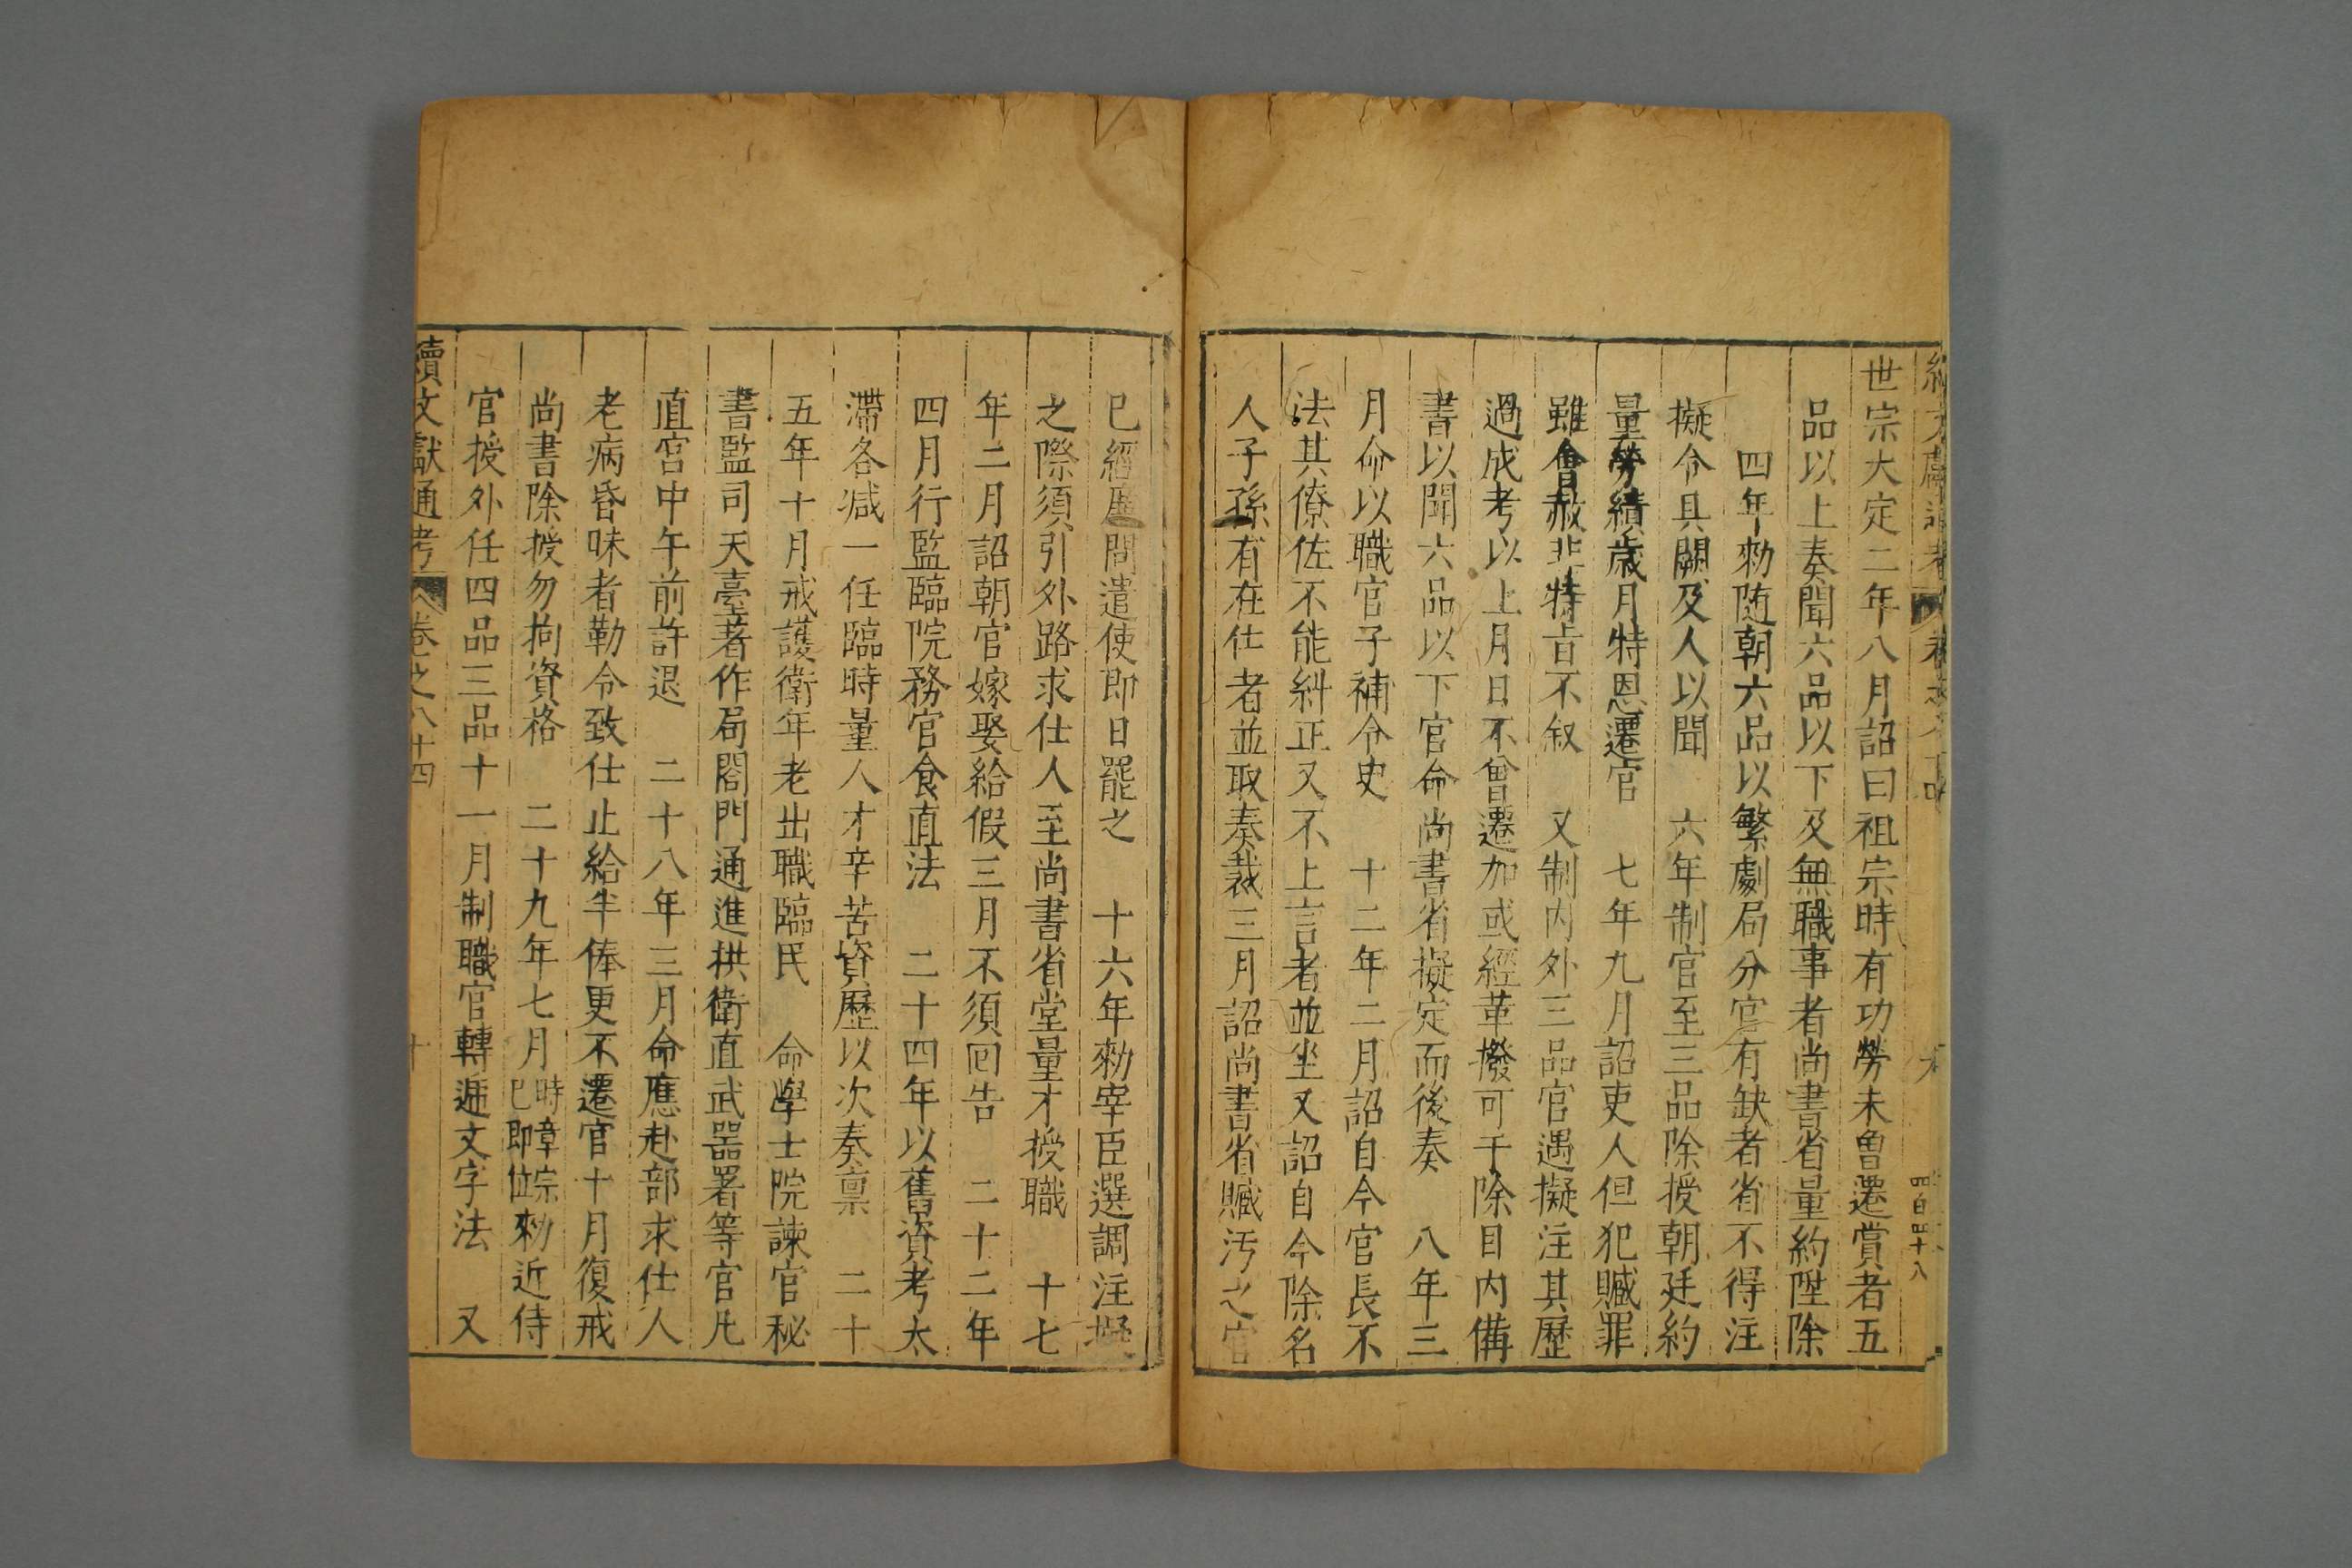 世宗大定二年八月詔曰祖宗時有功勞未曾遷賞者五
品以上奏聞六品以下及無職事者尚書省量約陞除
四年勑随朝六品以繁劇局分官有缺者省不得注
擬令具闕及人以聞　六年制官至三品除授朝廷約
量勞績歲月特恩遷官　七年九月詔吏人但犯贓罪
雖會赦非特旨不叙　又制内外三品官遇擬注其歷
過成考以上月日不曾遷加或經革撥可于除目内備
書以聞六品以下官命尚書省擬定而後奏　八年三
月命以職官子補令史　十二年二月詔自今官長不
法其僚佐不能糾正又不上言者並坐又詔自今除名
人子孫有在仕者並取奏裁三月詔尚書省贓汚之官
已經廉問遣使即日罷之　十六年勑宰臣選調注擬
之際須引外路求仕人至尚書省堂量才授職　十七
年二月詔朝官嫁娶給假三月不須囘告　二十二年
四月行監臨院務官食直法　二十四年以舊資考太
滯各减一任臨時量人才辛苦資歷以次奏禀　二十
五年十月戒護衛年老出職臨民　命學士院諫官秘
書監司天臺著作局閤門通進拱衛直武器署等官凡
直宮中午前許退　二十八年三月命應赴部求仕人
老病昏昧者勒令致仕止給半俸更不遷官十月復戒
尚書除授勿拘資格　二十九年七月時章宗巳即位勑近侍
官授外任四品三品十一月制職官轉遞文字法　又
續文獻通考　卷之八十四　十
四百四十八